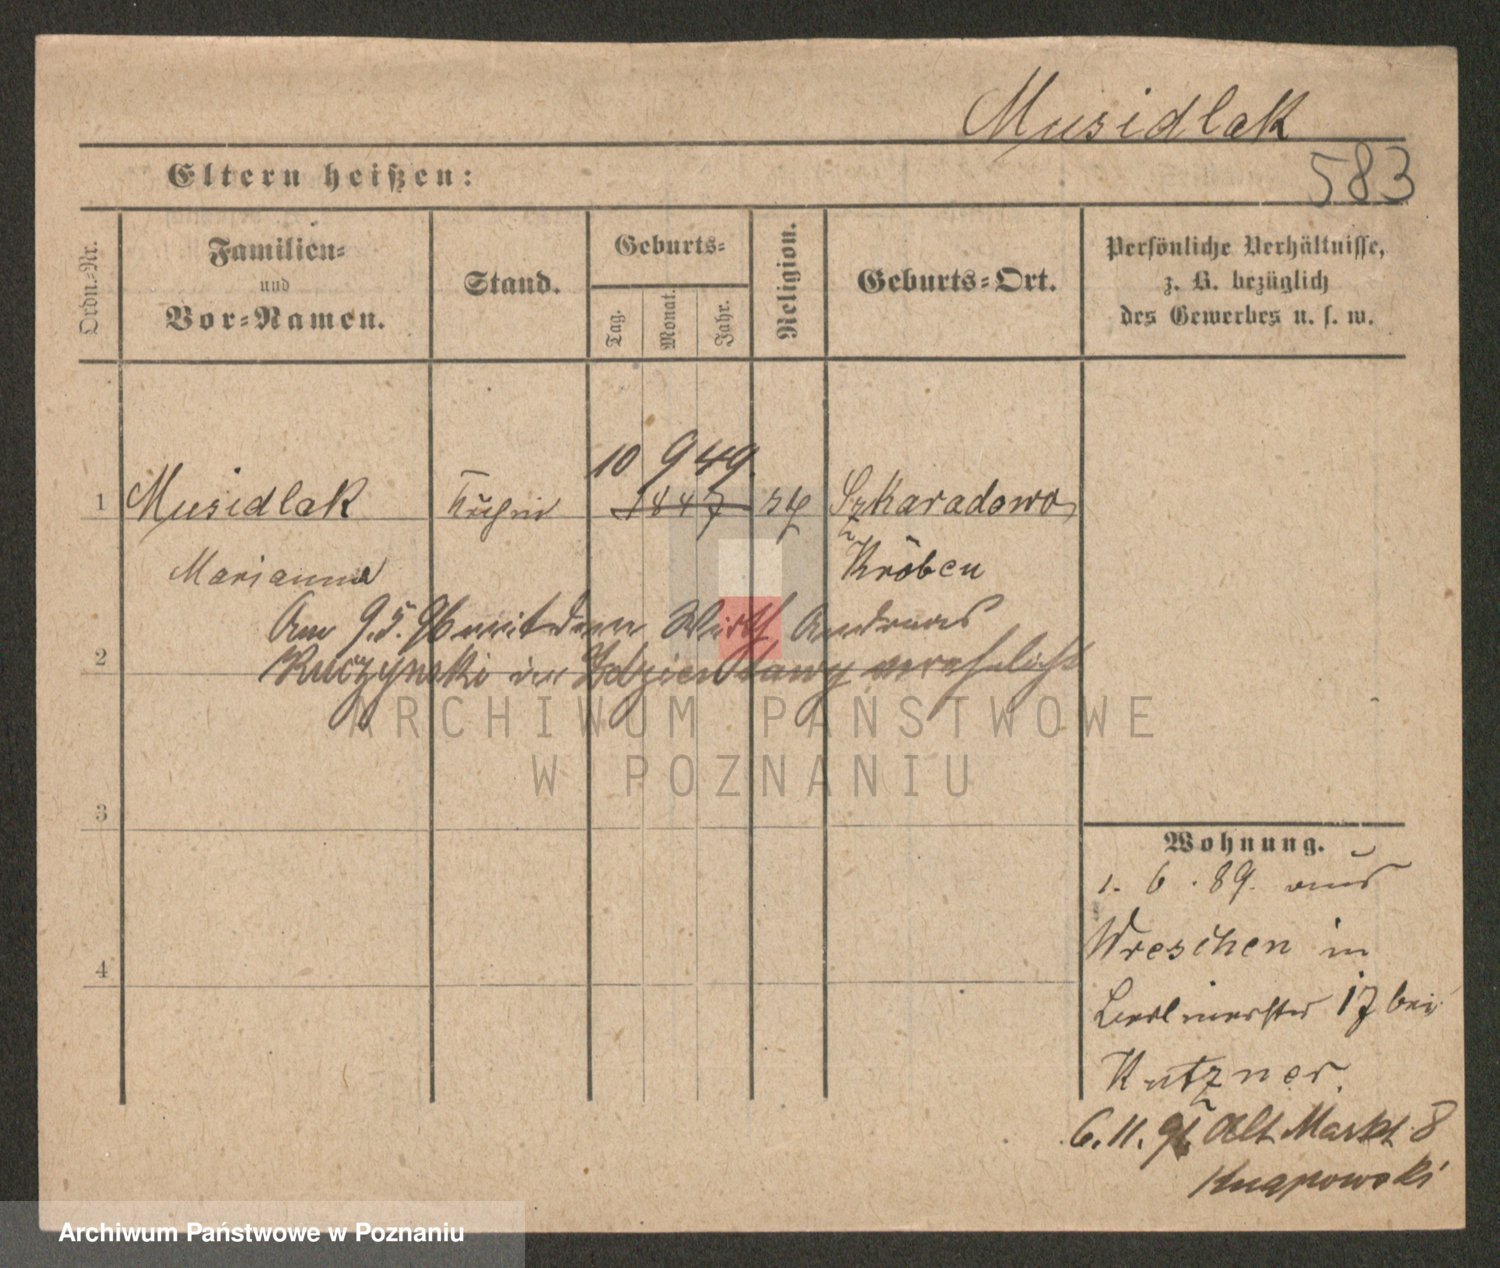 Musidlak
583
Eltern heißen:
Ordn.-Nr.
Familien-
und
Vor-Namen.
Stand.
Geburts-
Tag.
Monat.
Jahr.
Religion.
Geburts-Ort.
Persönliche Verhältnisse,
z. B. bezüglich
des Gewerbes u. s. w.
10 9 49.
1 Musidlak Köchin 1847 Szkaradowo
Marianna Kröben
Am 9.5.96 mit dem Wirth Andreas
2 Ruczynski in verehelicht
ARCHIWUM PAŃSTWOWE
W POZNANIU
3
Wohnung.
1. 6. 89. aus
Wreschen in
4
Berlinerstr 17 bei
Kutzner.
6. 11. 91. Alt Markt 8
Knapowski
Archiwum Państwowe w Poznaniu